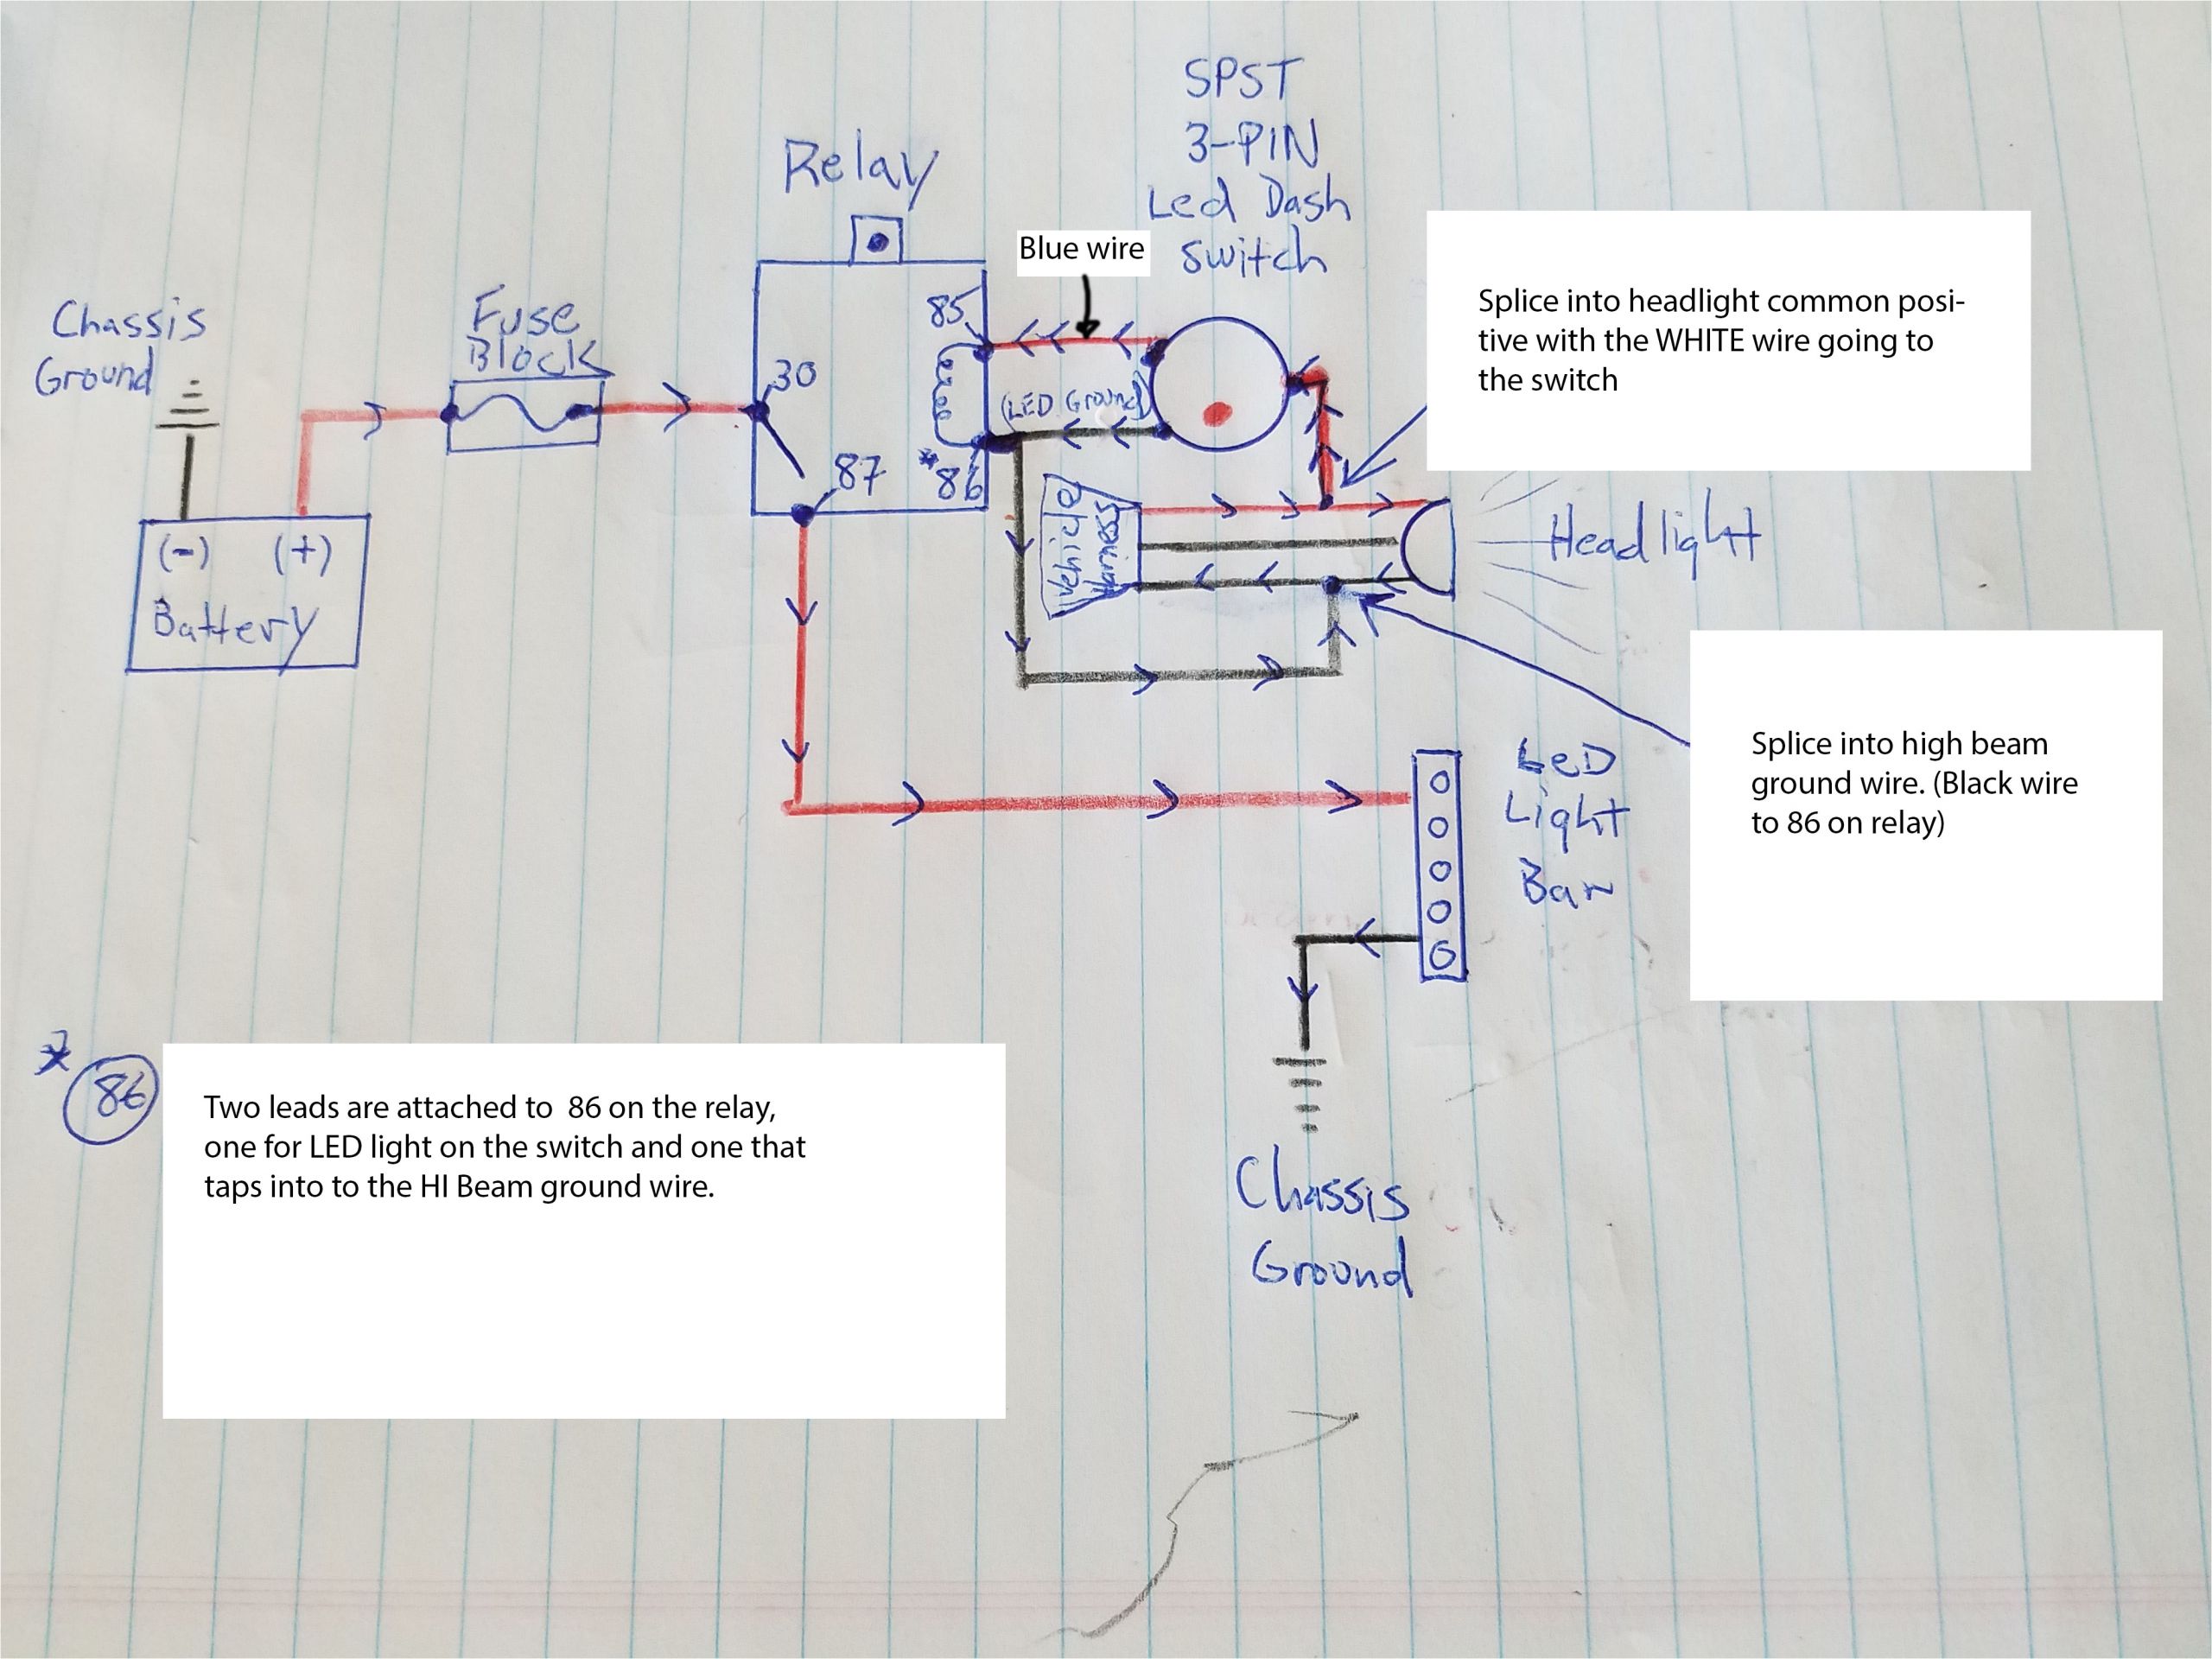 SPST
3-PIN
Led Dash
Switch
Relay
Blue wire
Splice into headlight common posi-
tive with the WHITE wire going to
the switch
Chassis
Ground
Fuse
Block
85
30
(LED Ground)
87
*86
Vehicle
Harness
Headlight
(-) (+)
Battery
Splice into high beam
ground wire. (Black wire
to 86 on relay)
LED
Light
Bar
* 86
Two leads are attached to 86 on the relay,
one for LED light on the switch and one that
taps into to the HI Beam ground wire.
Chassis
Ground